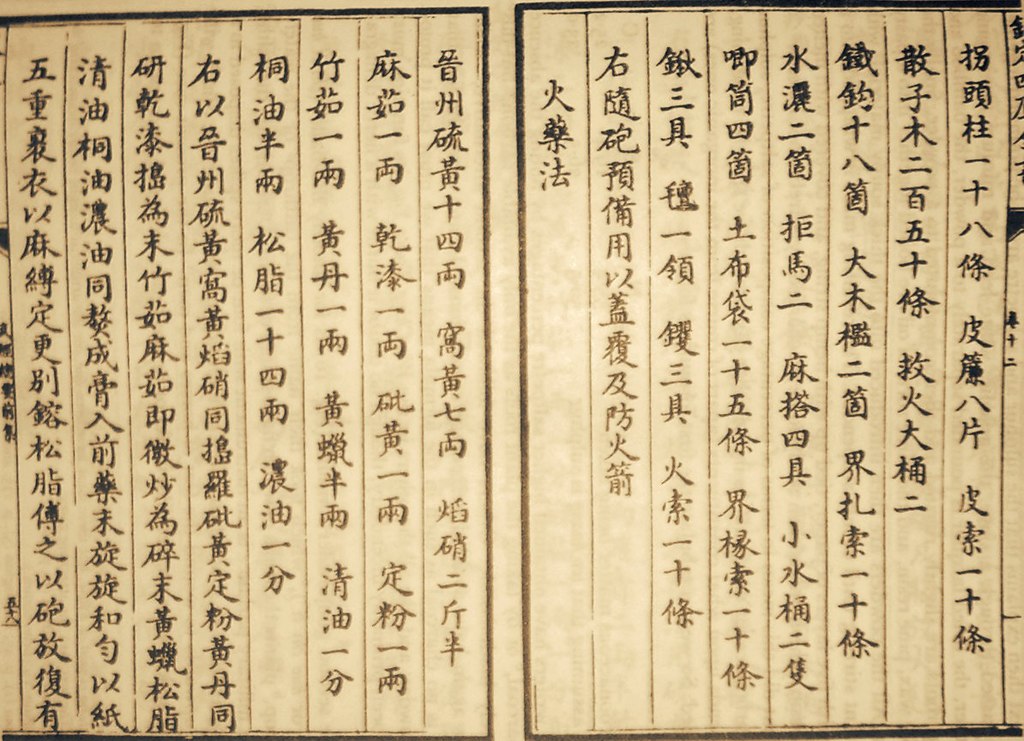 拐頭柱一十八條　皮簾八片　皮索一十條
散子木二百五十條　救火大桶二
鐵鈎十八箇　大木檻二箇　界扎索一十條
水濃二箇　拒馬二　麻搭四具　小水桶二隻
唧筒四箇　土布袋一十五條　界椽索一十條
鍬三具　氊一領　钁三具　火索一十條
右隨砲預備用以蓋覆及防火箭
火藥法
晉州硫黃十四兩　窩黃七兩　焰硝二斤半
麻茹一兩　乾漆一兩　砒黃一兩　定粉一兩
竹茹一兩　黃丹一兩　黃蠟半兩　清油一分
桐油半兩　松脂一十四兩　濃油一分
右以晉州硫黃窩黃焰硝同搗羅砒黃定粉黃丹同
研乾漆搗為末竹茹麻茹即微炒為碎末黃蠟松脂
清油桐油濃油同熬成膏入前藥末旋旋和勻以紙
五重裹衣以麻縛定更別鎔松脂傅之以砲放復有
卷十二